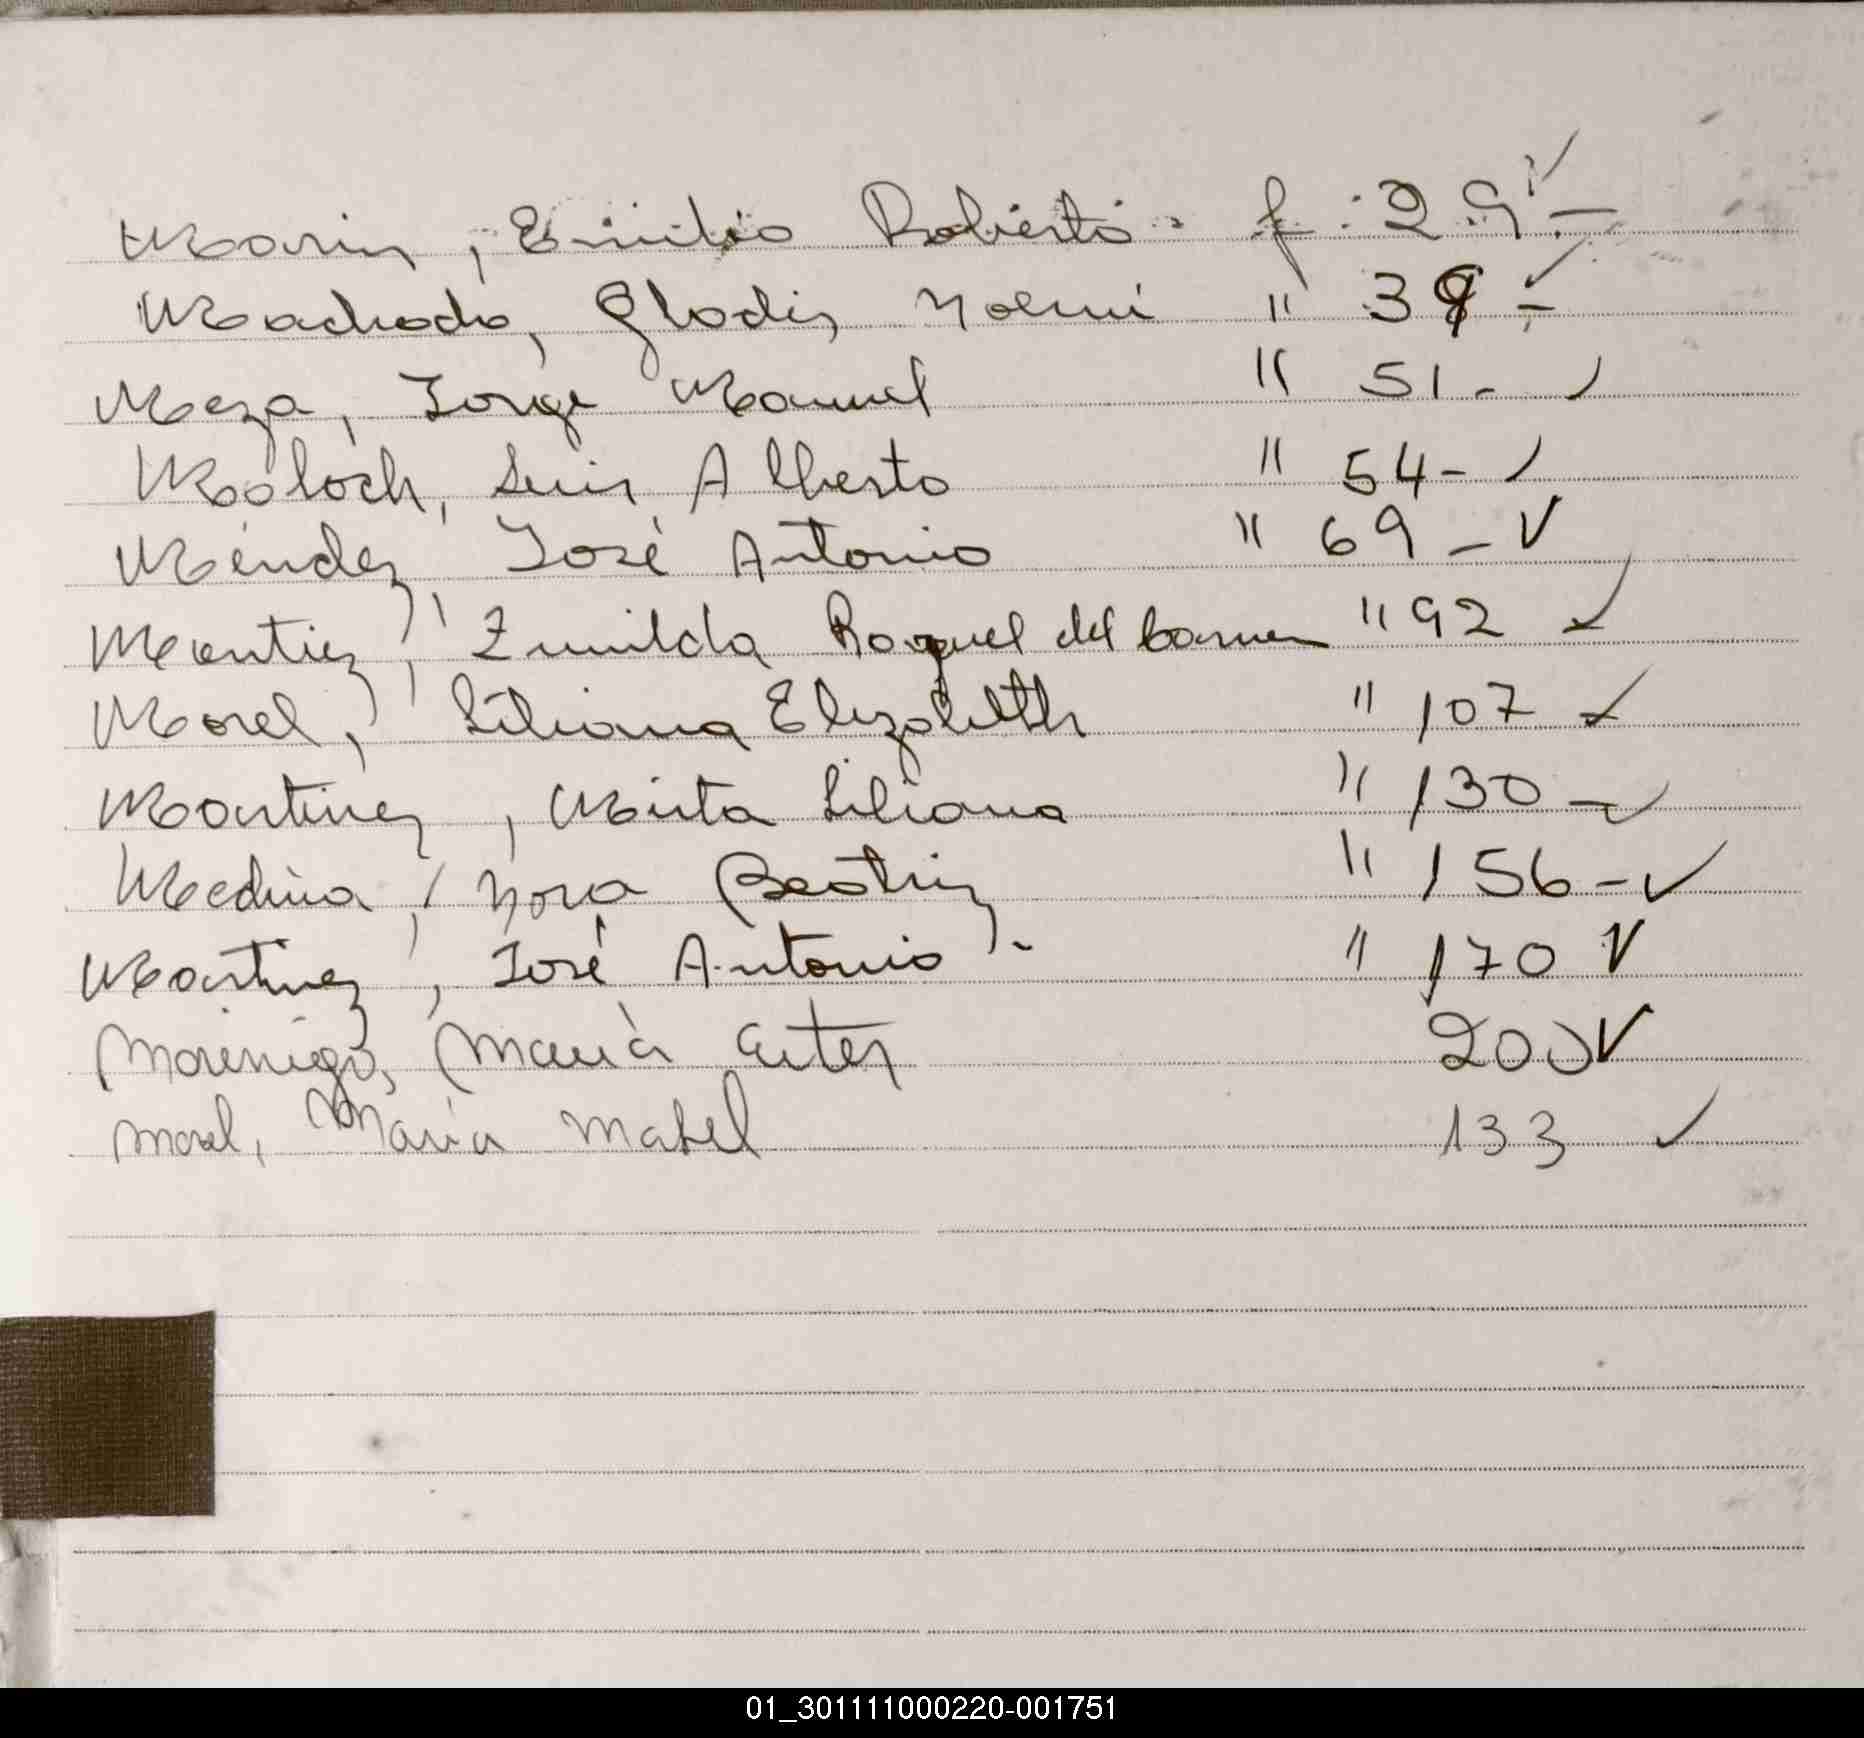 Marin, Emilio Roberto. f. 29 ✓ -
Machado, Gladis Noemi " 39 - ✓
Meza, Jorge Manuel " 51 - ✓
Moloch, Luis Alberto " 54 - ✓
Méndez, José Antonio " 69 - ✓
Montiez, Zunilda Raquel del Carmen " 92 ✓
Morel, Liliana Elizabetth " 107 ✓
Martinez, Mirta Liliana " 130 - ✓
Medina, Nora Beatriz " 156 - ✓
Martinez, José Antonio - " 170 ✓
Morenigo, María Ester 200 ✓
Morel, María Mabel 133 ✓
01_301111000220-001751